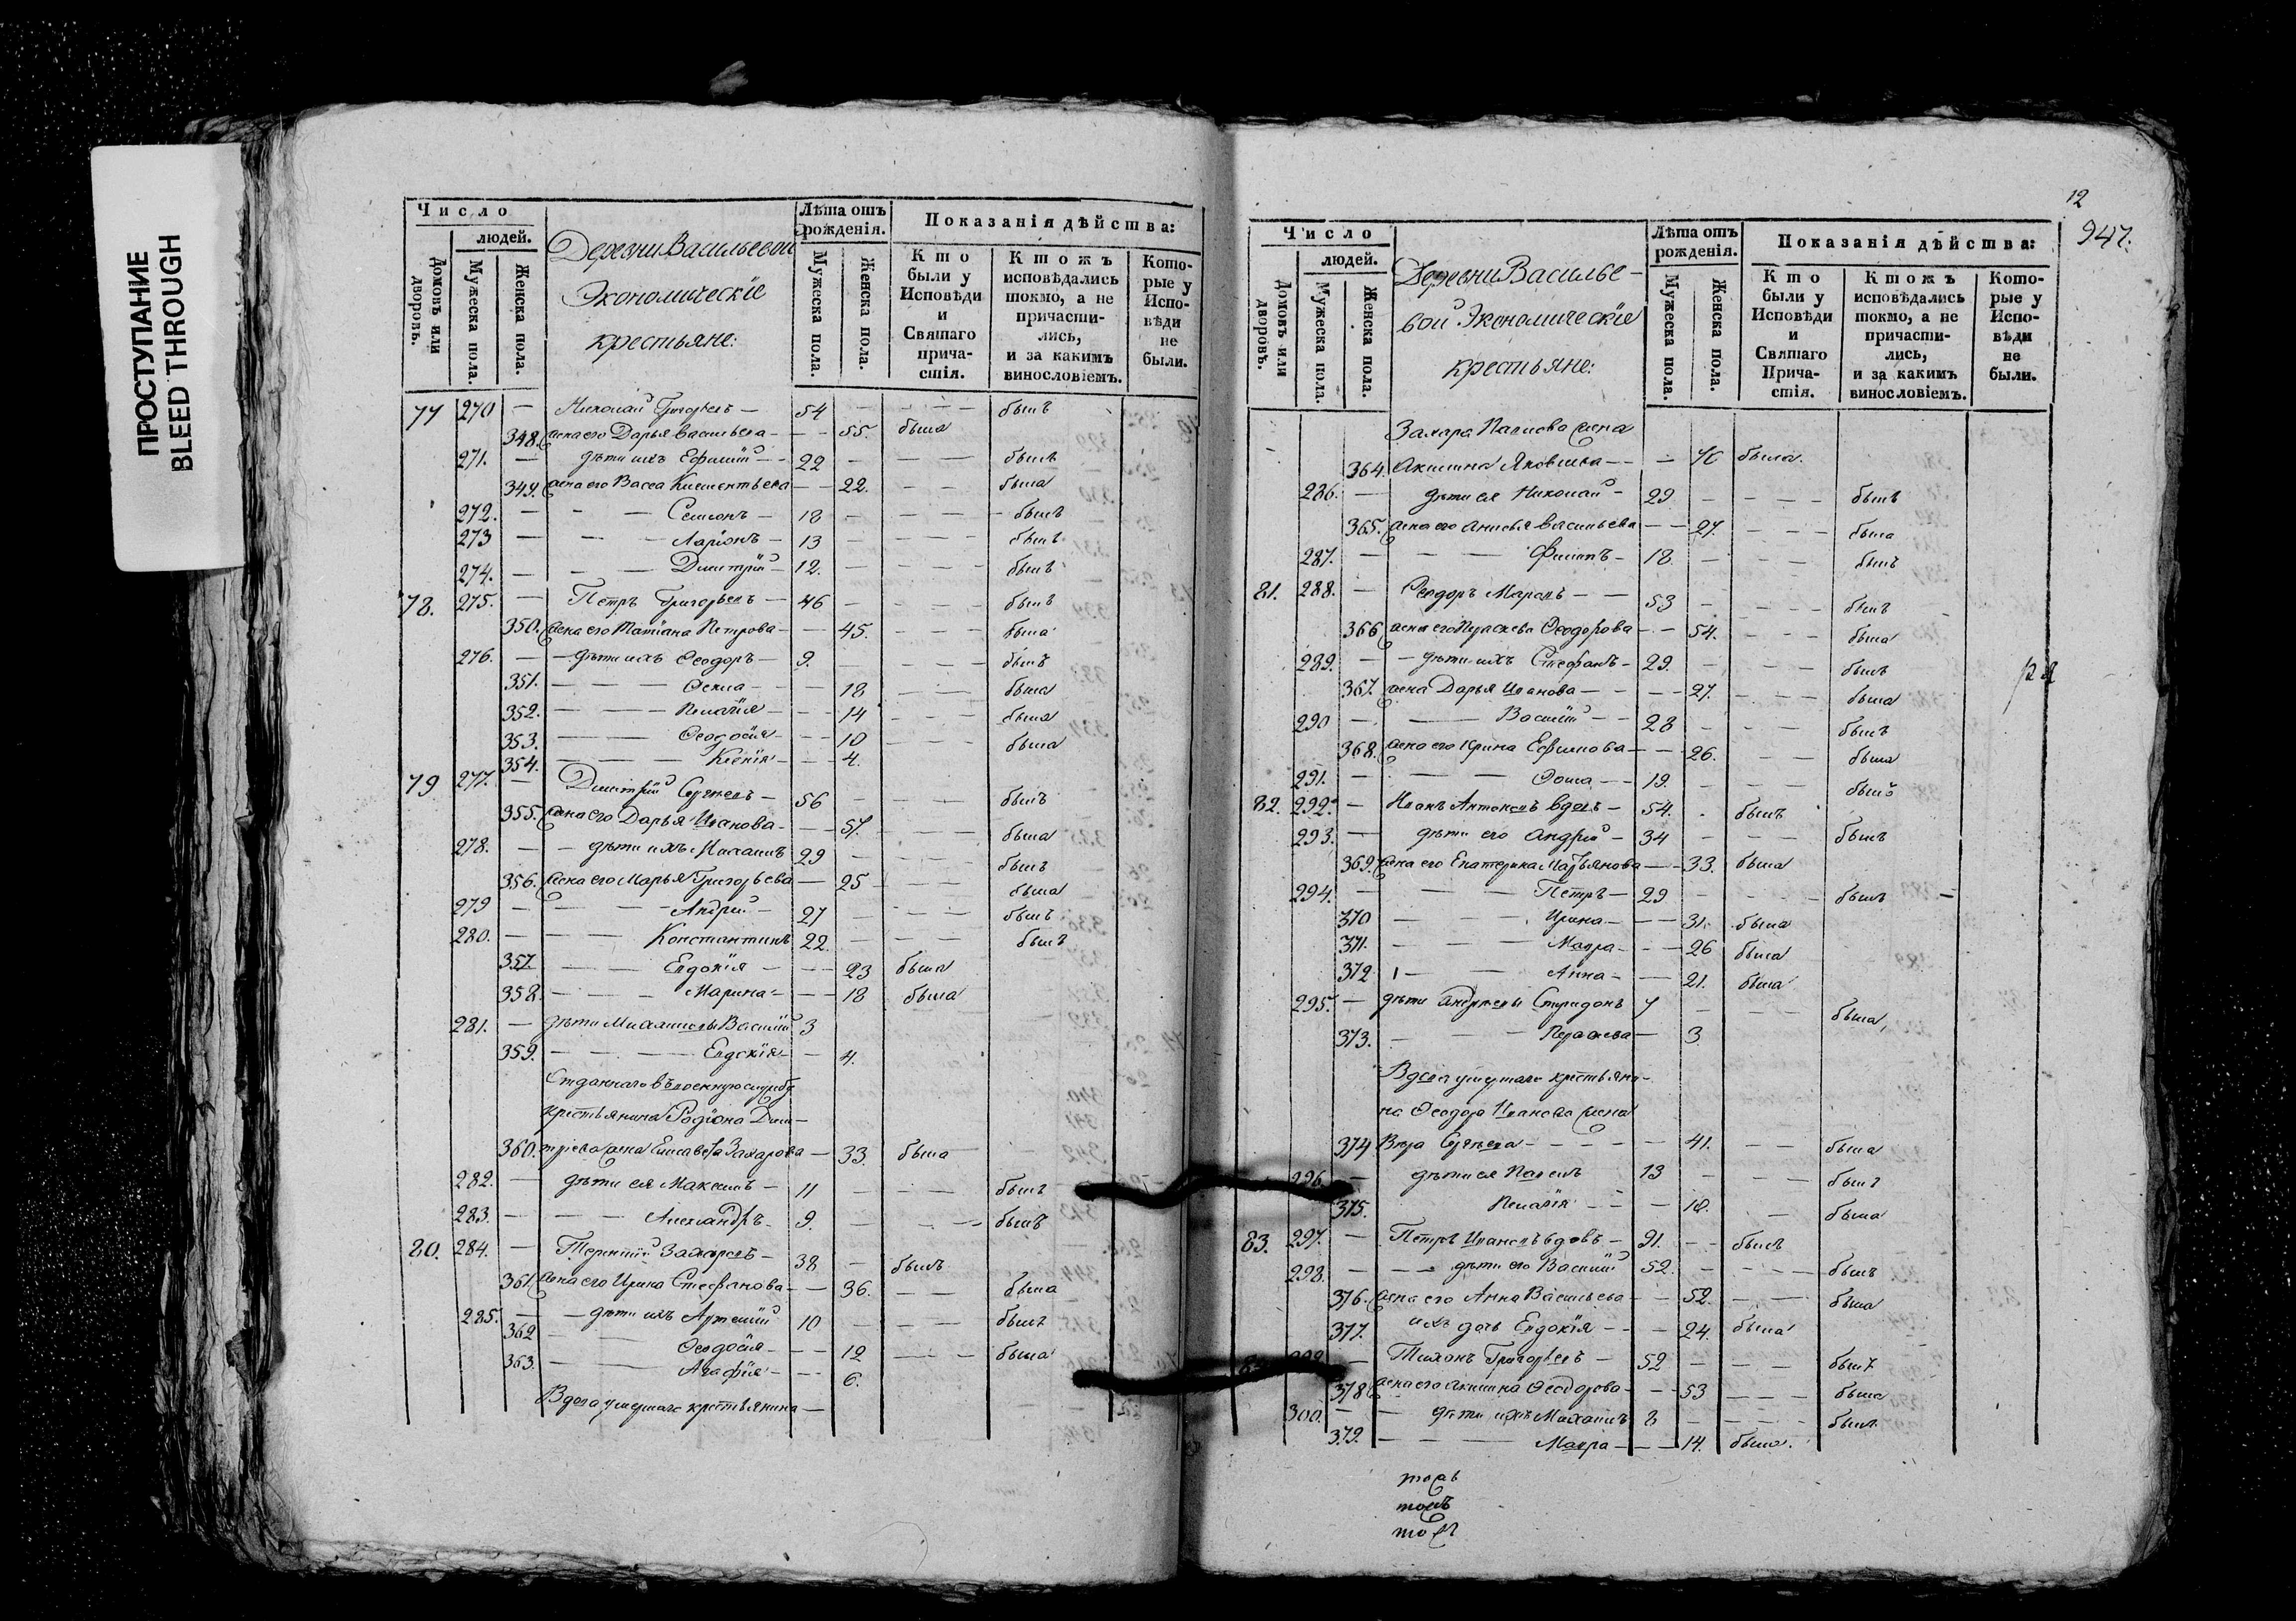 ПРОСТУПАНИЕ
BLEED THROUGH
Число
людей.
Домовъ или дворовъ.
Мужеска пола.
Женска пола.
Деревни Васильевой
Экономическiе
крестьяне:
Лѣта отъ рожденiя.
Мужеска пола.
Женска пола.
Показанiя дѣйства:
Кто были у Исповѣди и Святаго причастiя.
Ктожъ исповѣдались токмо, а не причастились, и за какимъ винословiемъ.
Которые у Исповѣди не были.
77 270 — Николай Григорьевъ — 54 — — — — былъ
348. жена его Дарья Васильева — — 55. была
271. — дѣти ихъ Ефимiй — 22 — — — былъ
349. жена его Васса Климентьева — — 22. — — была
272. — — — Семионъ — 18 — — — — былъ
273 — — — Ларiонъ — 13 — — — — былъ
274. — — — Димитрiй — 12. — — — — былъ
78. 275. — Петръ Григорьевъ — 46 — — — — былъ
350. жена его Татiана Петрова — — 45. — — — была
276. — — дѣти ихъ Ѳеодоръ — 9. — — — былъ
351. — — — Ѳекла — — 18 — — — была
352. — — — Пелагiя — — 14 — — — была
353. — — — Ѳеодосiя — — 10 — — — была
354. — — — Ксенiя — — 4.
79 277. — Димитрiй Сергѣевъ — 56 — — — — былъ
355. жена его Дарья Иванова — — 57. — — — была
278. — — дѣти ихъ Михаилъ 29 — — — — былъ
356. жена его Марья Григорьева — 25 — — — была
279 — — — Андрей — 27 — — — — былъ
280. — — — Константинъ 22 — — — — былъ
357. — — Евдокiя — — 23 была
358. — — — Марина — — 18 была
281. — дѣти Михаиловы Василiй 3
359. — — — Евдокiя — — 4.
Отданнаго въ военную службу
крестьянина Родiона Дми-
360. трiева жена Елисавета Захарова — 33. была
282. — дѣти ея Максимъ — 11 — — — былъ
283. — — — Александръ — 9. — — — — былъ
80. 284. — Терентiй Захаровъ — 38 — былъ
361. жена его Ирина Стефанова — — 36. — — была
285. — — дѣти ихъ Артемiй 10 — — — — былъ
362 — — Ѳеодосiя — — 12 — — — была
363. — — Агафiя — — 6.
Вдова умершаго крестьянина —
12
947.
Число
людей.
Домовъ или дворовъ.
Мужеска пола.
Женска пола.
Деревни Василье-
вой Экономическiе
крестьяне:
Лѣта отъ рожденiя.
Мужеска пола.
Женска пола.
Показанiя дѣйства:
Кто были у Исповѣди и Святаго Причастiя.
Ктожъ исповѣдались токмо, а не причастились, и за какимъ винословiемъ.
Которые у Исповѣди не были.
Захара жена
364. Акилина Яковлева — — — была.
286. — дѣти ея Николай — 29 — — — — былъ
365. жена его Анисья Васильева — — 27. — — — была
287. — — — Филипъ — 18 — — — былъ
81. 288. — Ѳеодоръ — — 53 — — — — былъ
366 жена его Параскева Ѳеодорова — — 54. — — — была
289. — — дѣти ихъ Стефанъ — 29. — — — — былъ
367. жена Дарья Иванова — — — — 27. — — — была
290 — — Василiй — — 28 — — — былъ
368. жена его Ирина Ефимова — — 26. — — была
291. — — — Ѳома — — 19. — — — былъ
82. 292. — Иванъ Антоновъ вдовъ — 54. былъ
293. — дѣти его Андрей — 34 — — — былъ
369. жена его Екатерина Мартьянова — — 33. была
294. — — — Петръ — 29 — — — — былъ
370 — — Ирина — — — 31. была
371. — — Мавра — — — 26 была
372 — — Анна — — 21. была
295. — дѣти Андреевы Спиридонъ 7 — — — была
373. — — — Параскева — 3
Вдова умершаго крестьяни-
на Ѳеодора Иванова жена
374 Вѣра Сергѣева — — — — — 41. — — была
296. — дѣти ея Павелъ 13 — — — — былъ
375. Пелагiя — — — 18. — была
83. 297. — Петръ Ивановъ вдовъ — 91. — — былъ
298. — — — дѣти его Василiй 52. — — — — былъ
376. жена его Анна Васильева — — 52. — — была
377. ихъ дочь Евдокiя — — — 24. была
— Тихонъ Григорьевъ — 52 — — — былъ
378 жена его Акилина Ѳеодорова — — 53 — — — была
300. — — дѣти ихъ Михаилъ 8 — — — — былъ
379. — — — Мавра — — — 14. была.